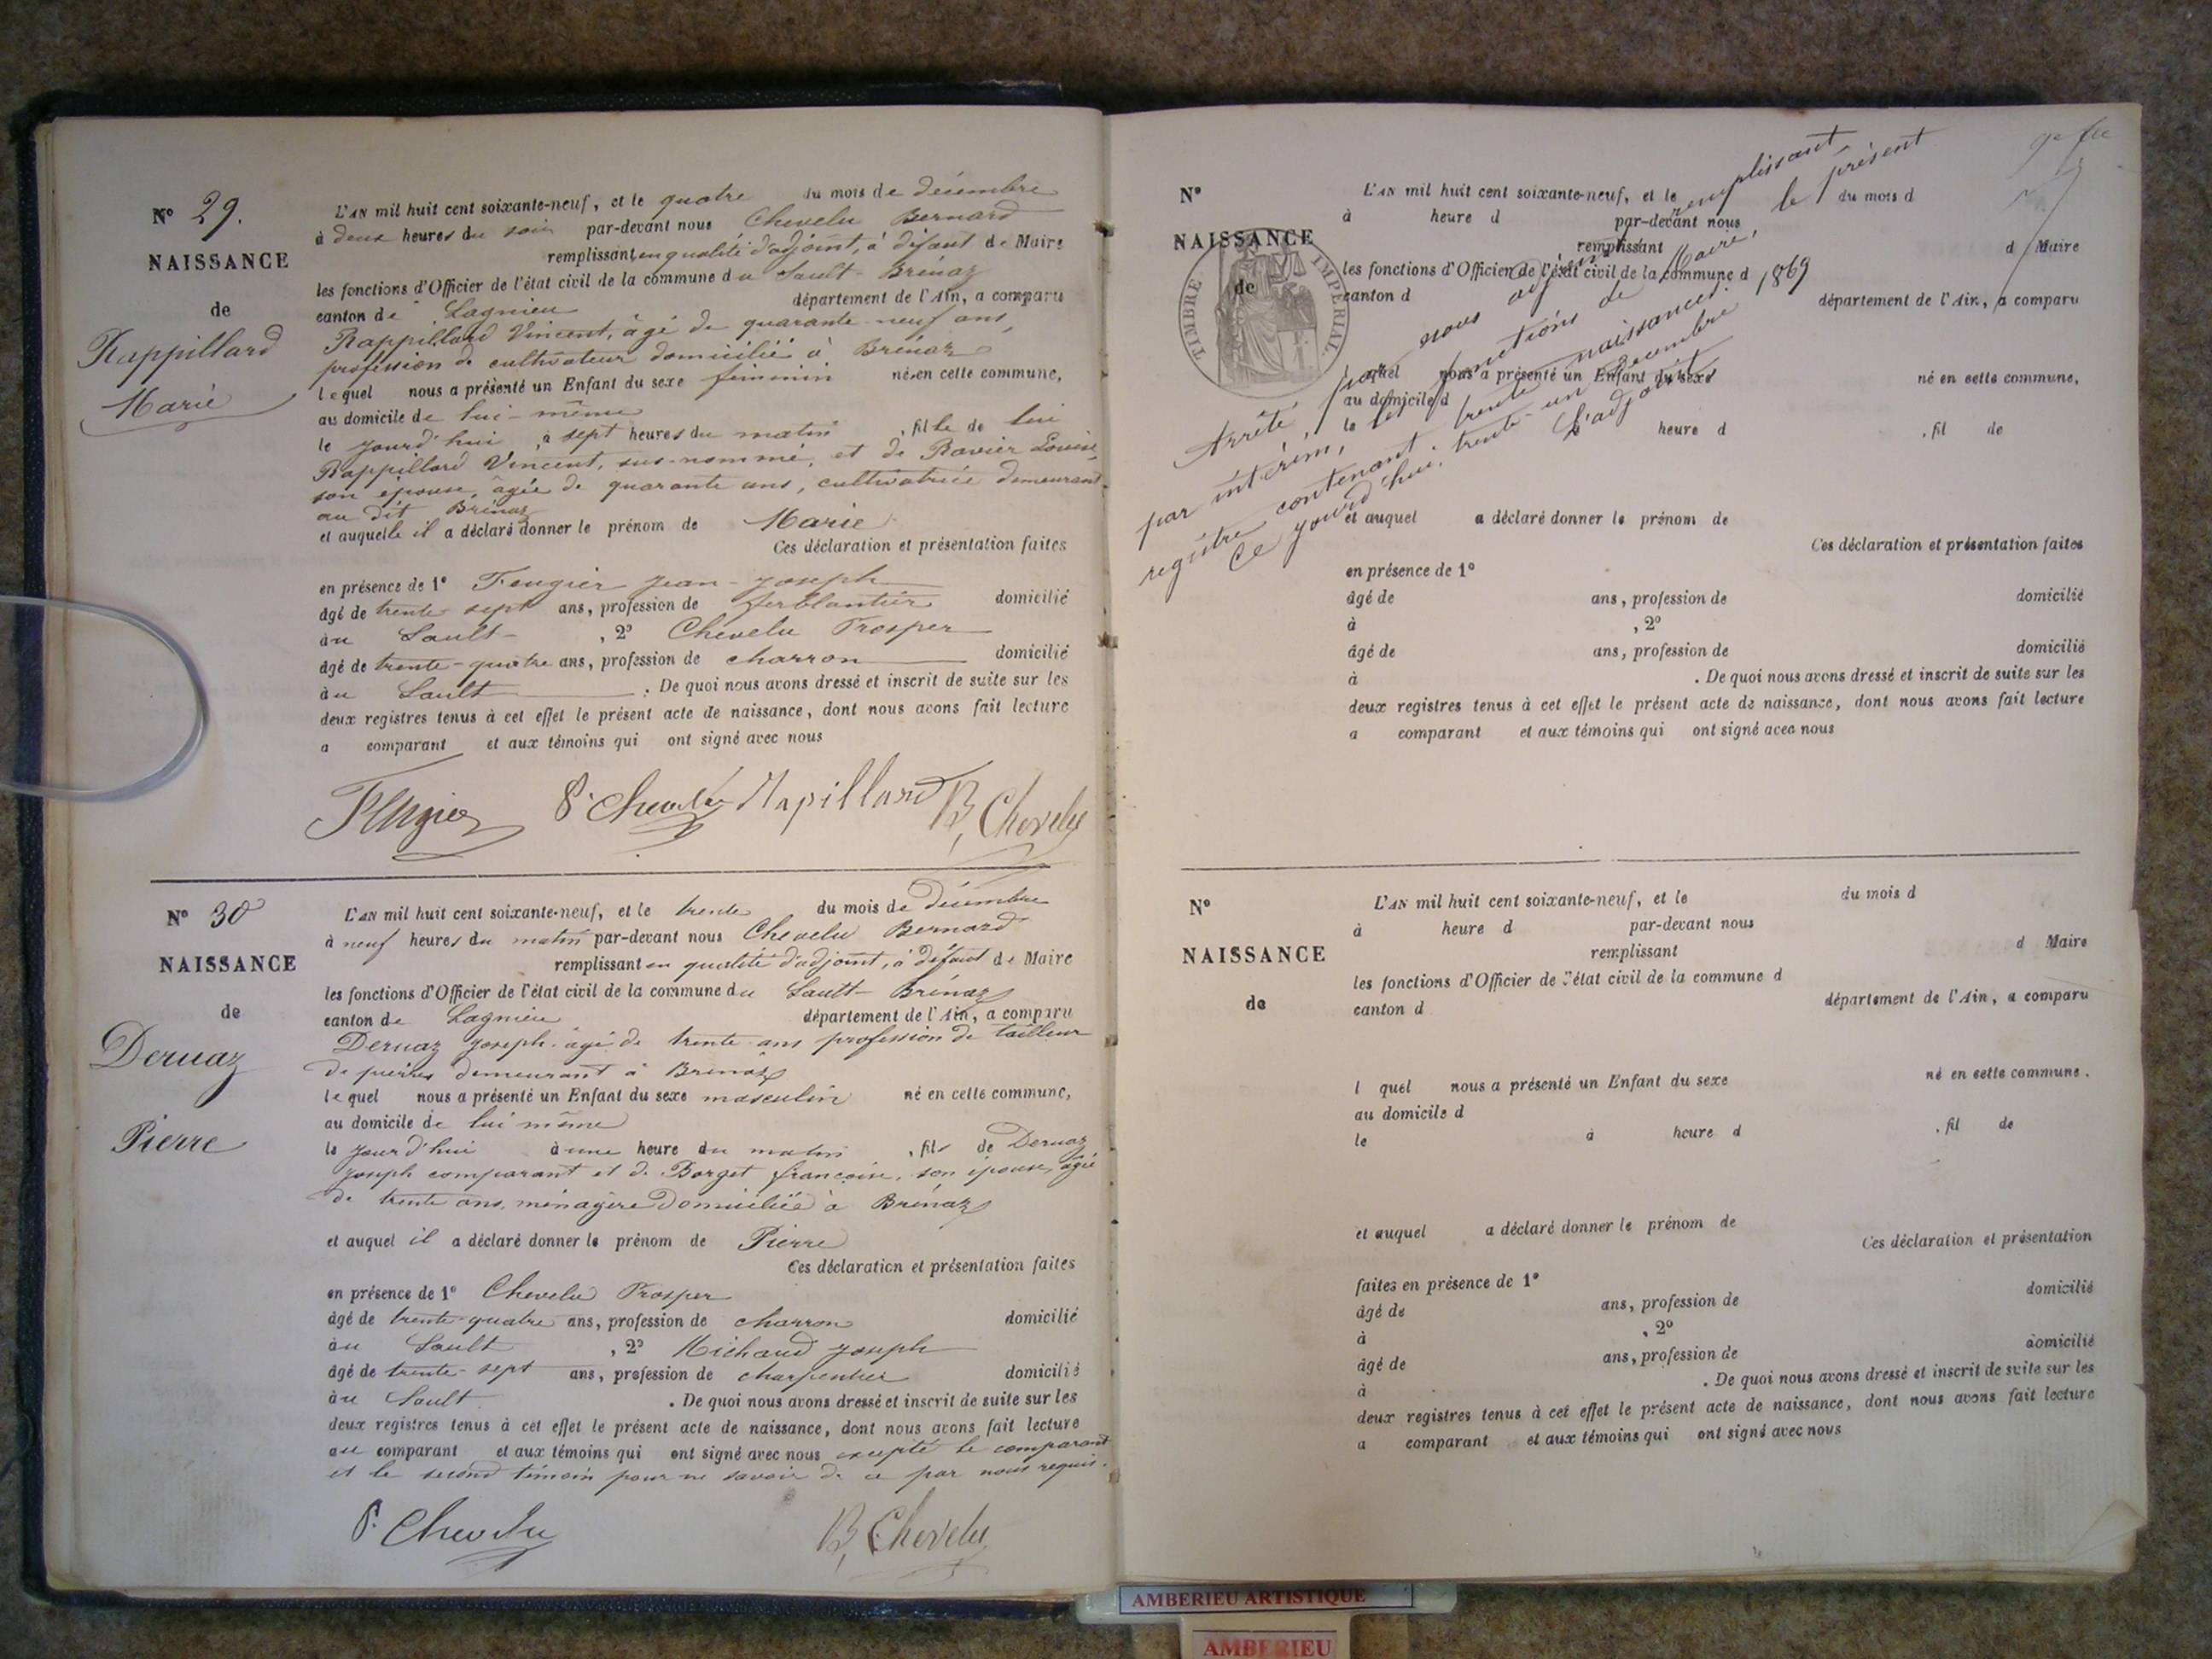 N° 29.
NAISSANCE
de
Rappillard
Marie
L'AN mil huit cent soixante-neuf, et le quatre du mois de décembre
à deux heures du soir par-devant nous Chevelu Bernard
remplissant en qualité d'adjoint, à défaut de Maire
les fonctions d'Officier de l'état civil de la commune du Sault-Brénaz
canton de Lagnieu département de l'Ain, a comparu
Rappillard Vincent, âgé de quarante-neuf ans,
profession de cultivateur domicilié à Brénaz
lequel nous a présenté un Enfant du sexe féminin née en cette commune,
au domicile de lui-même
le jourd'hui à sept heures du matin, fille de lui
Rappillard Vincent, sus-nommé, et de Ravier Louise,
son épouse, âgée de quarante ans, cultivatrice demeurant
au dit Brénaz
et auquelle il a déclaré donner le prénom de Marie
Ces déclaration et présentation faites
en présence de 1° Feugier Jean-Joseph
âgé de trente-sept ans, profession de ferblantier domicilié
au Sault, 2° Chevelu Prosper
âgé de trente-quatre ans, profession de charron domicilié
au Sault. De quoi nous avons dressé et inscrit de suite sur les
deux registres tenus à cet effet le présent acte de naissance, dont nous avons fait lecture
a comparant et aux témoins qui ont signé avec nous
Feugier P. Chevelu Rapillard B. Chevelu
N° 30
NAISSANCE
de
Deruaz
Pierre
L'AN mil huit cent soixante-neuf, et le trente du mois de Décembre
à neuf heures du matin par-devant nous Chevelu Bernard
remplissant en qualité d'adjoint, à défaut de Maire
les fonctions d'Officier de l'état civil de la commune du Sault-Brénaz
canton de Lagnieu département de l'Ain, a comparu
Deruaz Joseph âgé de trente ans profession de tailleur
de pierres demeurant à Brénaz
lequel nous a présenté un Enfant du sexe masculin né en cette commune,
au domicile de lui même
le jourd'hui à une heure du matin, fils de Deruaz
Joseph comparant et de Borget françoise, son épouse, âgée
de trente ans, ménagère Domiciliée à Brénaz
et auquel il a déclaré donner le prénom de Pierre
Ces déclaration et présentation faites
en présence de 1° Chevelu Prosper
âgé de trente-quatre ans, profession de charron domicilié
au Sault, 2° Michaud Joseph
âgé de trente-sept ans, profession de charpentier domicilié
au Sault. De quoi nous avons dressé et inscrit de suite sur les
deux registres tenus à cet effet le présent acte de naissance, dont nous avons fait lecture
au comparant et aux témoins qui ont signé avec nous excepté le comparant
et le second témoin pour ne savoir de ce par nous requis.
P. Chevelu B. Chevelu
N°
NAISSANCE
de
TIMBRE IMPERIAL
L'AN mil huit cent soixante-neuf, et le du mois d
à heure d par-devant nous
remplissant d Maire
les fonctions d'Officier de l'état civil de la commune d
canton d département de l'Ain, a comparu
l quel nous a présenté un Enfant du sexe né en cette commune,
au domicile d
le à heure d, fil de
et auquel a déclaré donner le prénom de
Ces déclaration et présentation faites
en présence de 1°
âgé de ans, profession de domicilié
à, 2°
âgé de ans, profession de domicilié
à. De quoi nous avons dressé et inscrit de suite sur les
deux registres tenus à cet effet le présent acte de naissance, dont nous avons fait lecture
a comparant et aux témoins qui ont signé avec nous
Arrêté par nous adjoint remplissant
par intérim, les fonctions de Maire, le présent
registre contenant trente naissances.
Ce jourd'hui, trente-un Décembre 1869
L'adjoint
N°
NAISSANCE
de
L'AN mil huit cent soixante-neuf, et le du mois d
à heure d par-devant nous
remplissant d Maire
les fonctions d'Officier de l'état civil de la commune d
canton d département de l'Ain, a comparu
l quel nous a présenté un Enfant du sexe né en cette commune.
au domicile d
le à heure d, fil de
et auquel a déclaré donner le prénom de
Ces déclaration et présentation
faites en présence de 1°
âgé de ans, profession de domicilié
à, 2°
âgé de ans, profession de domicilié
à. De quoi nous avons dressé et inscrit de suite sur les
deux registres tenus à cet effet le présent acte de naissance, dont nous avons fait lecture
a comparant et aux témoins qui ont signé avec nous
AMBERIEU ARTISTIQUE
AMBERIEU